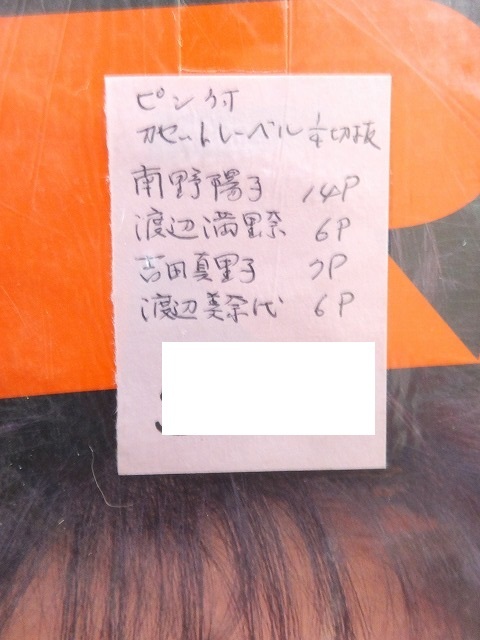 ピンナップ付
カセットレーベル 1/4切抜
南野陽子 14P
渡辺満里奈 6P
吉田真里子 7P
渡辺美奈代 6P